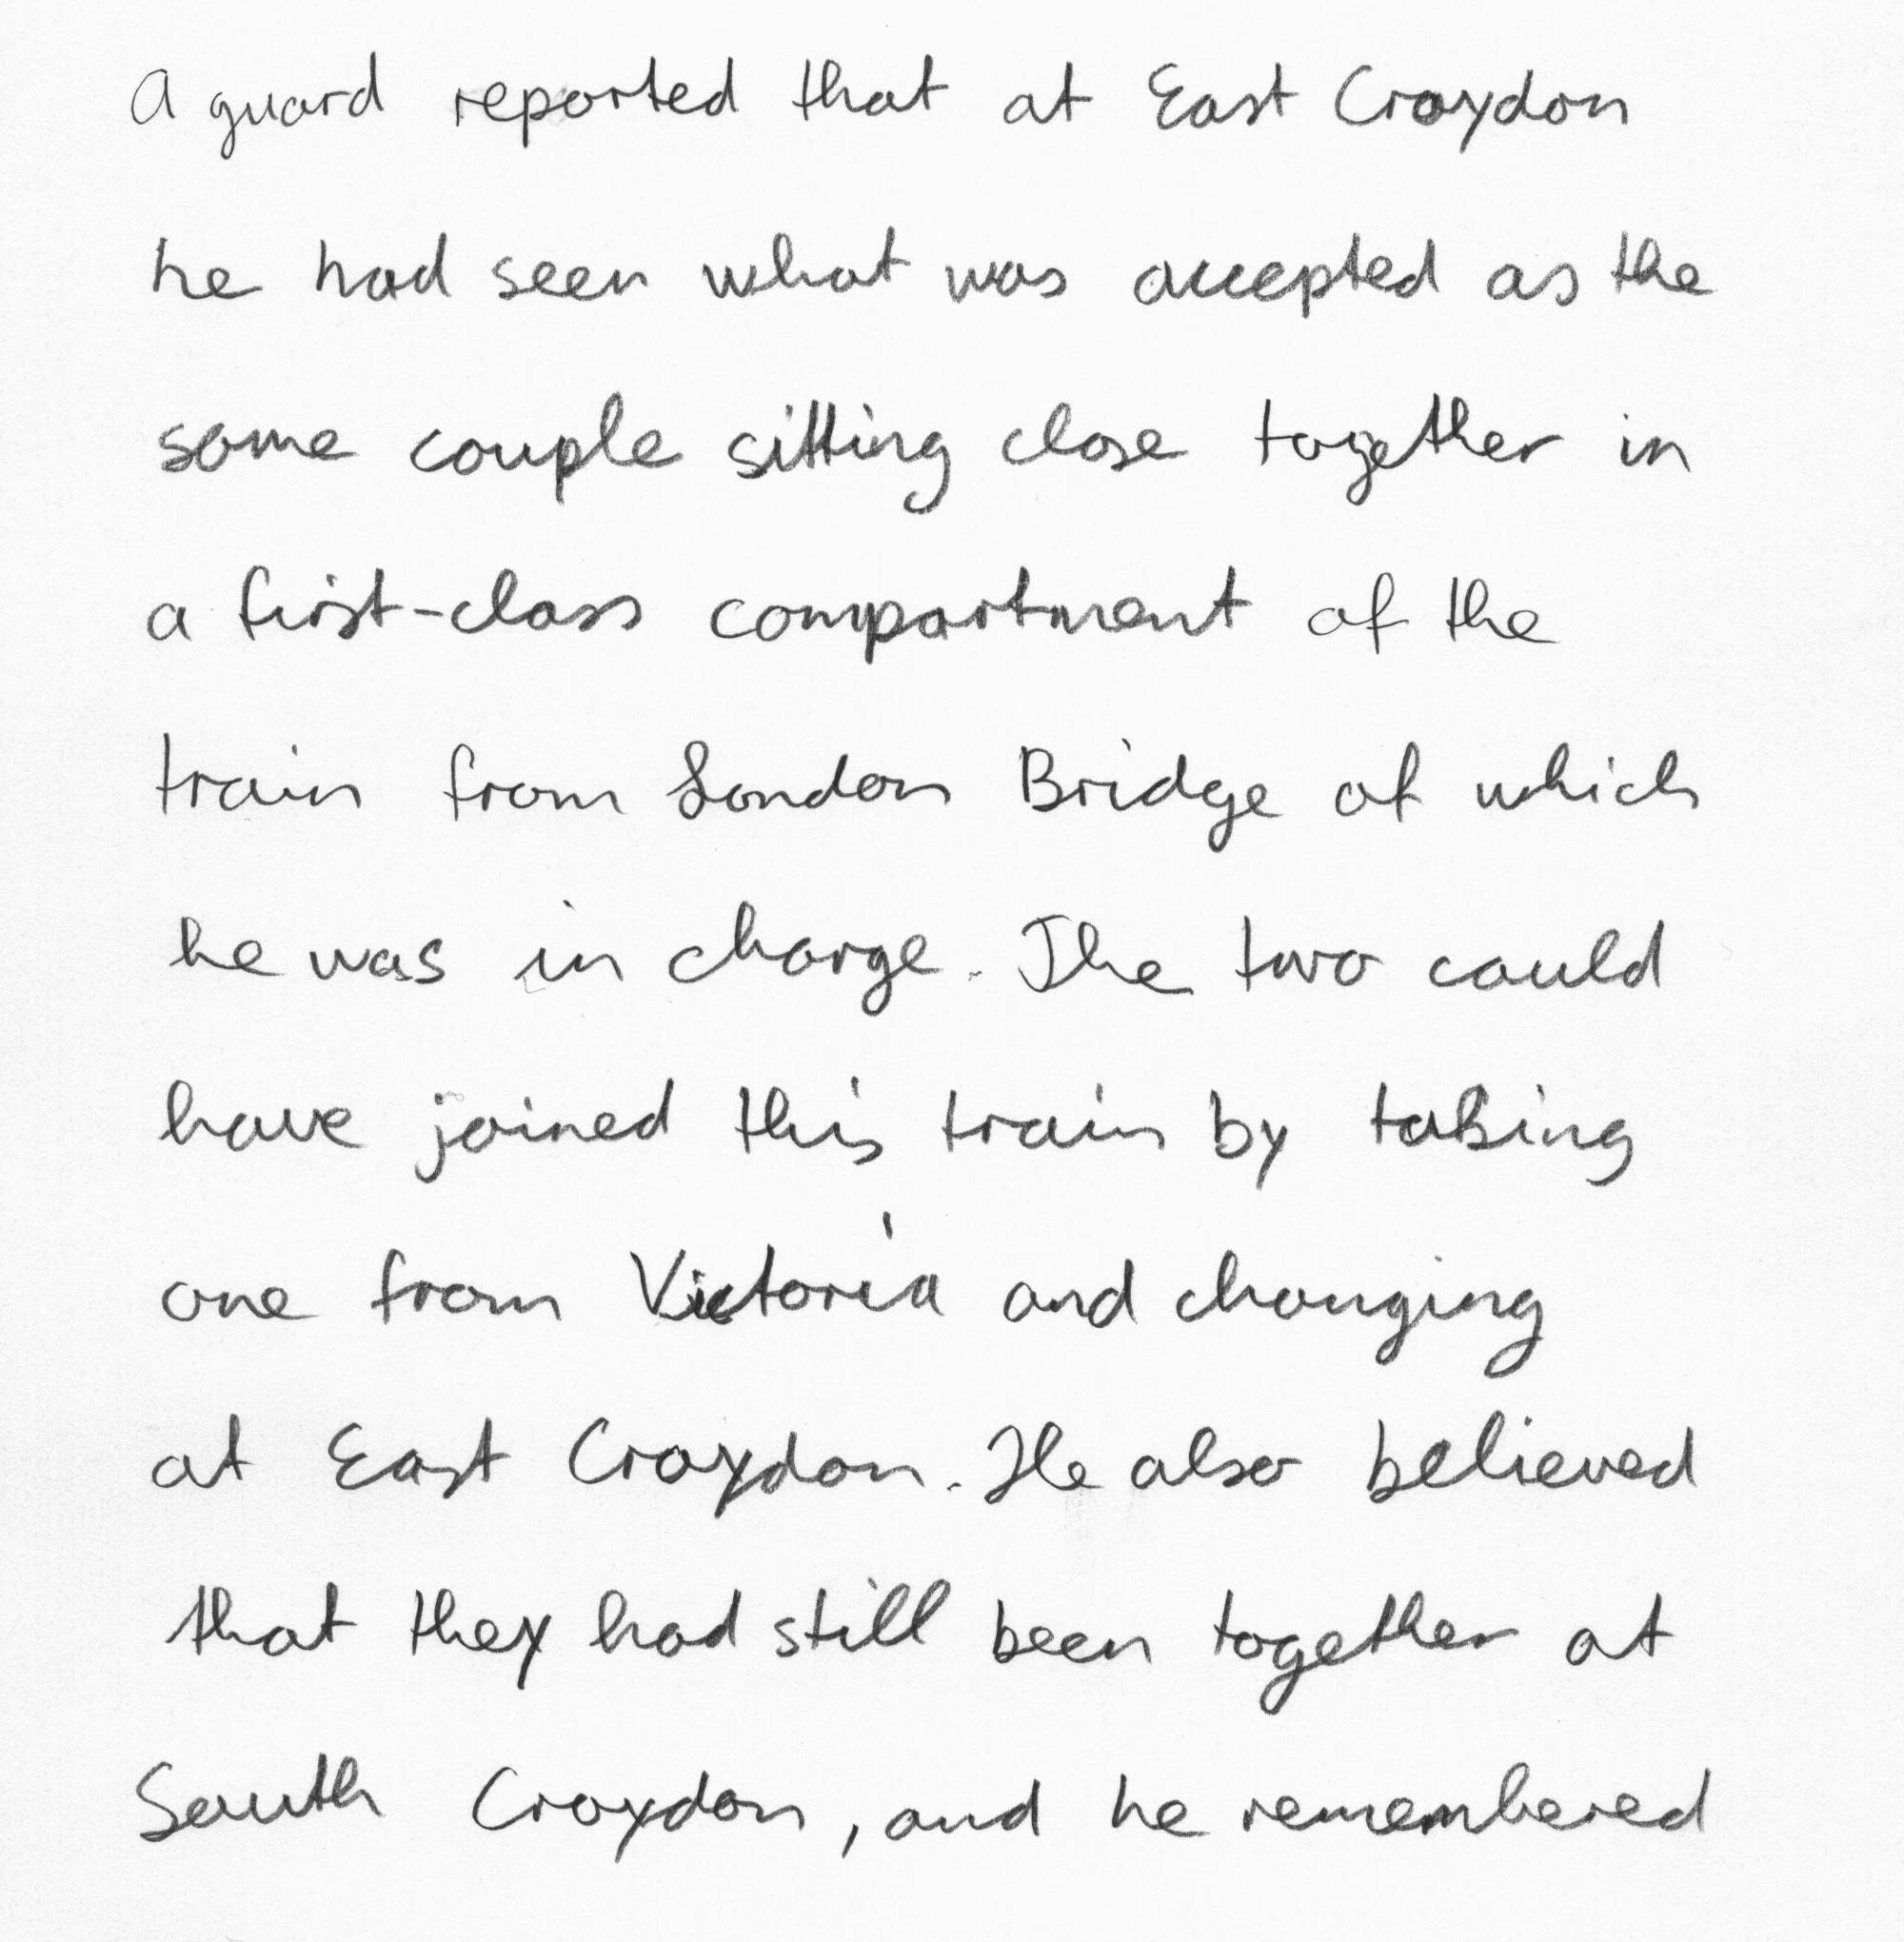 A guard reported that at East Croydon
he had seen what was accepted as the
same couple sitting close together in
a first-class compartment of the
train from London Bridge of which
he was in charge. The two could
have joined this train by taking
one from Victoria and changing
at East Croydon. He also believed
that they had still been together at
South Croydon, and he remembered